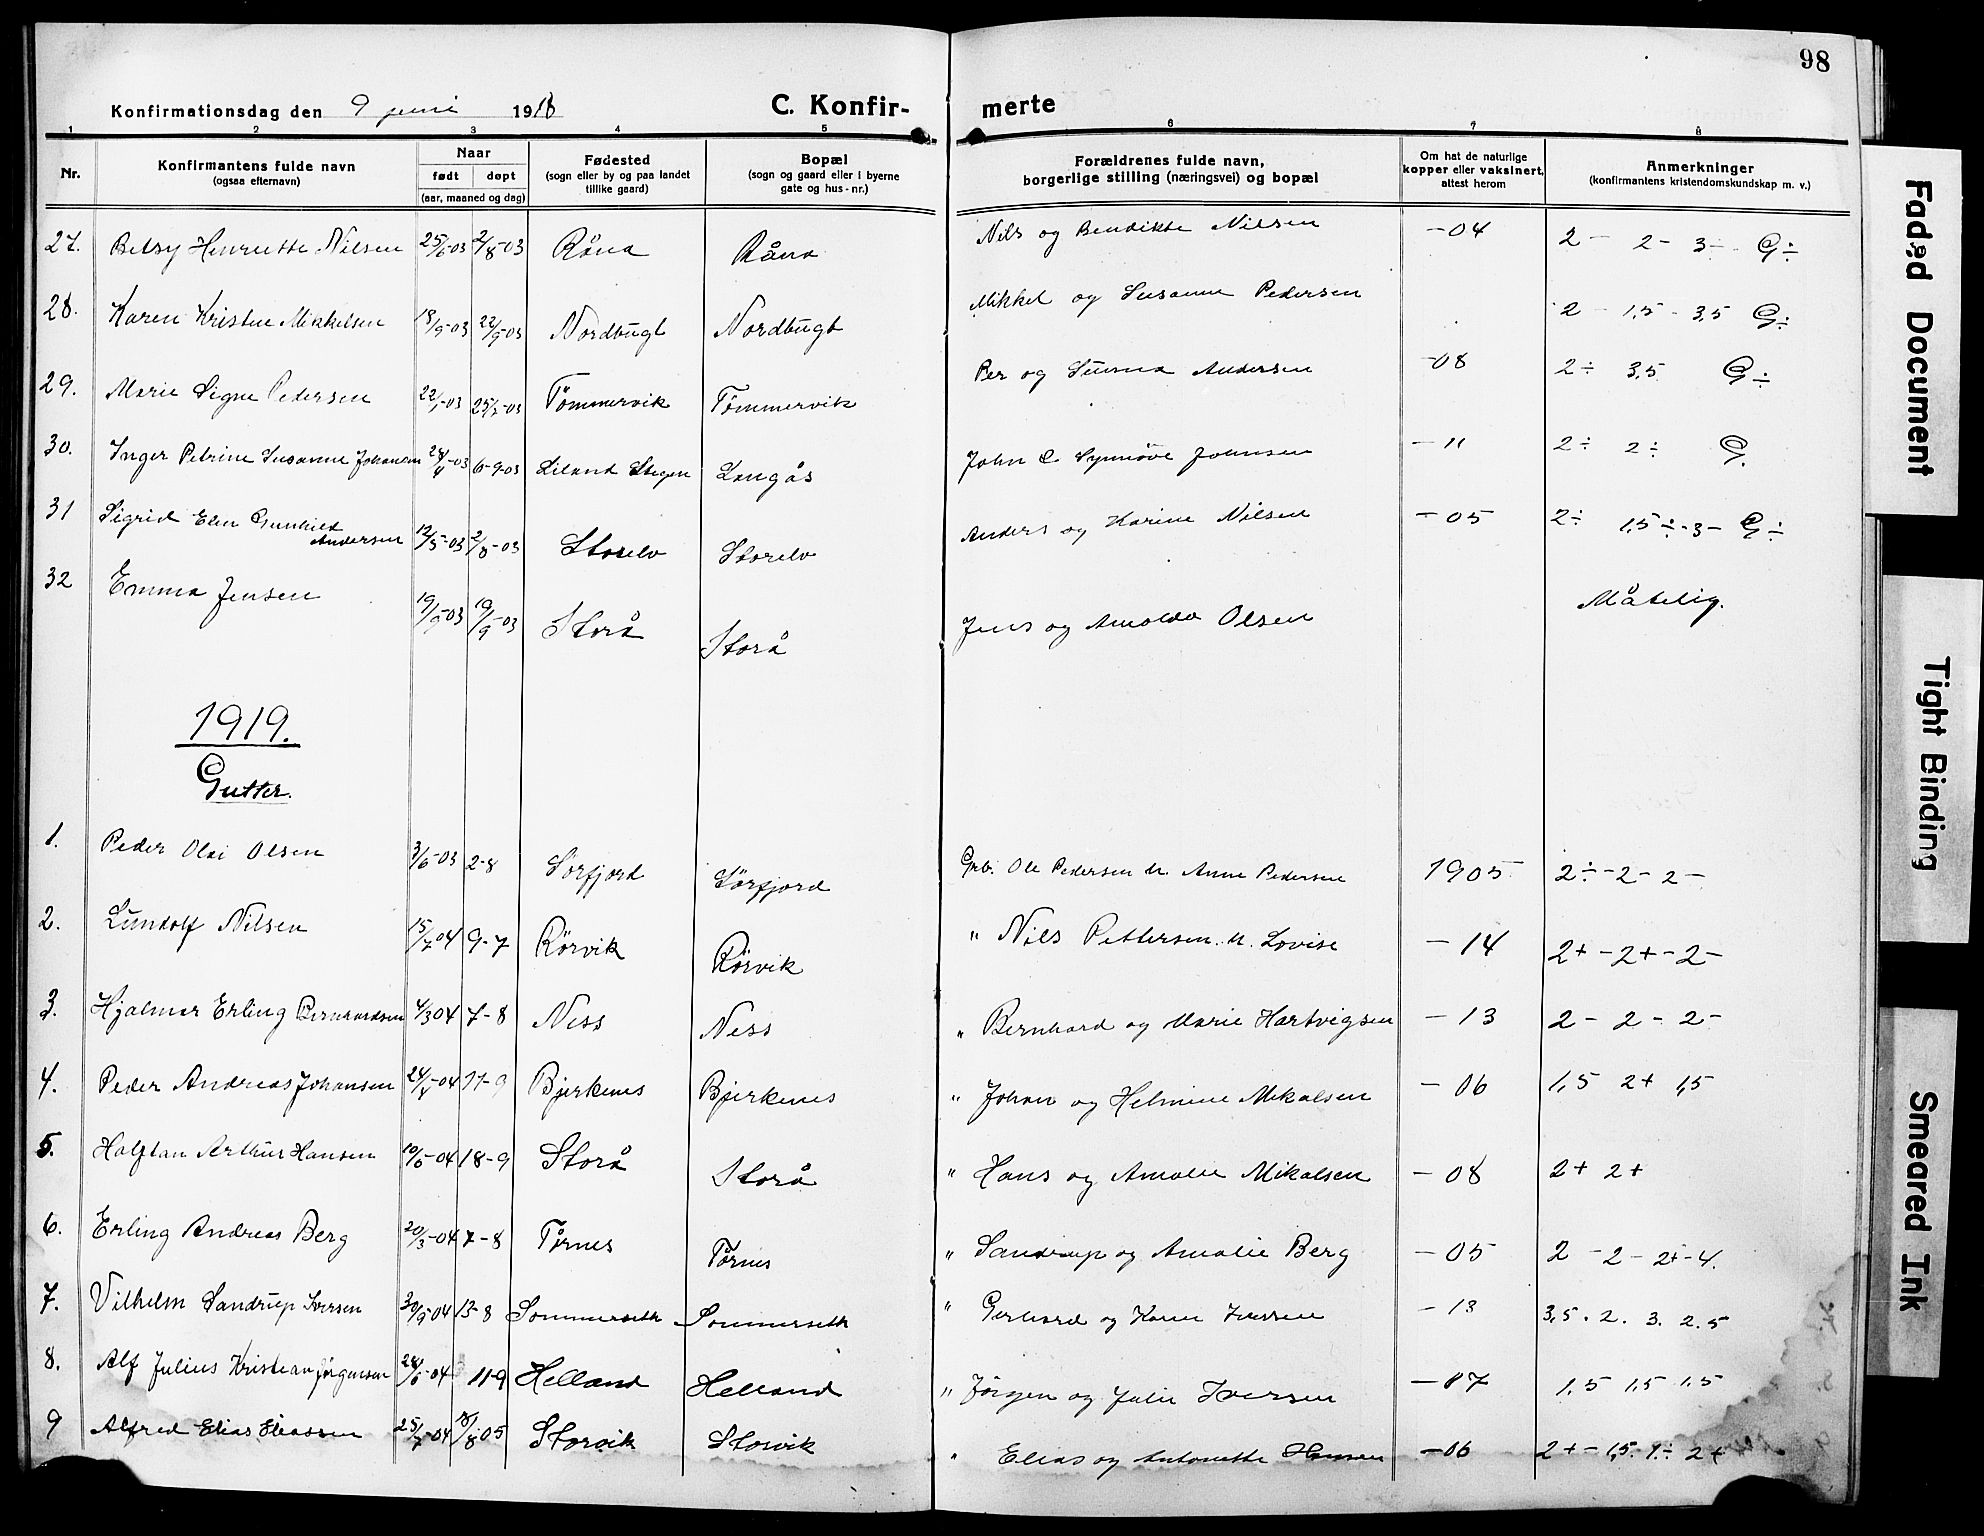 98
Konfirmationsdag den 9 juni 1918 C. Konfir- merte
1 2 3 4 5 6 7 8
Nr. Konfirmantens fulde navn (ogsaa efternavn) Naar født døpt (aar, maaned og dag) Fødested (sogn eller by og paa landet tillike gaard) Bopæl (sogn og gaard eller i byerne gate og hus-nr.) Forældrenes fulde navn, borgerlige stilling (næringsvei) og bopæl Om hat de naturlige kopper eller vaksinert, attest herom Anmerkninger (konfirmantens kristendomskundskap m. v.)
27. Betsy Henriette Nilsen 25/6-03 2/8-03 Råna Råna Nils og Bendikte Nilsen -04 2- 2- 3- G÷
28. Karen Kristine Mikkelsen 18/9-03 22/9-03 Nordbugt Nordbugt Mikkel og Susanne Pedersen 2 - 1,5 - 3,5 G÷
29. Marie Signe Pedersen 22/1-03 25/2-03 Tömmervik Tømmervik Per og Andersen -08 2÷ 3,5 G÷
30. Inger Petrine Susanne Johansen 28/4-03 6-9-03 Liland Langås John Synnöve Johnsen -11 2÷ 2÷ G.
31 Sigrid Elen Gunhild Andersen 12/5-03 2/8-03 Storelv Storelv Anders og Karine Nilsen -05 2÷ 1,5÷-3- G÷
32 Emma Jensen 19/9-03 19/9-03 Storå Storå Jens og Arnolda Olsen Måtelig.
1919.
Gutter.
1. Peder Olai Olsen 3/6-03 2-8 Sörfjord Sörfjord Grb. Ole Pedersen u. Anne Pedersen 1905 2÷-2-2-
2. Lundolf Nilsen 15/7 04 9-7 Rörvik Rörvik " Nils Pettersen u. Lovise -14 2+-2+-2-
3. Hjalmar Erling Bernhardsen 4/3 04 7-8 Ness Ness " Bernhard og Marie Hartvigsen -13 2- 2- 2-
4. Peder Andreas Johansen 24/5-04 11-9 Bjerkenes Bjerkenes " Johan og Helmine Mikalsen -06 1,5 2+ 1,5
5. Halfdan Arthur Hansen 10/5-04 18-9 Storå Storå " Hans og Amalie Mikalsen -08 2+ 2+
6. Erling Andreas Berg 20/3-04 7-8 Tørnes Tørnes " Sandrup og Amalie Berg -05 2 -2- 2+-4.
7. Vilhelm Sandrup Iversen 30/9-04 13-8 Sommerseth Sommerseth " Gerhard og Iversen -13 3,5. 2. 3. 2.5
8. Alf Julius Kristian Jörgensen 28/6-04 11-9 Helland Helland " Jörgen og Julie Iversen -07 1,5 1,5 1,5
9 Alfred Elias Eliassen 25/7-04 /8 05 Storvik Storvik " Elias og Antonette Hansen -06 2+- 1,5. 1÷ 2+
Faded Document
Tight Binding
Smeared Ink